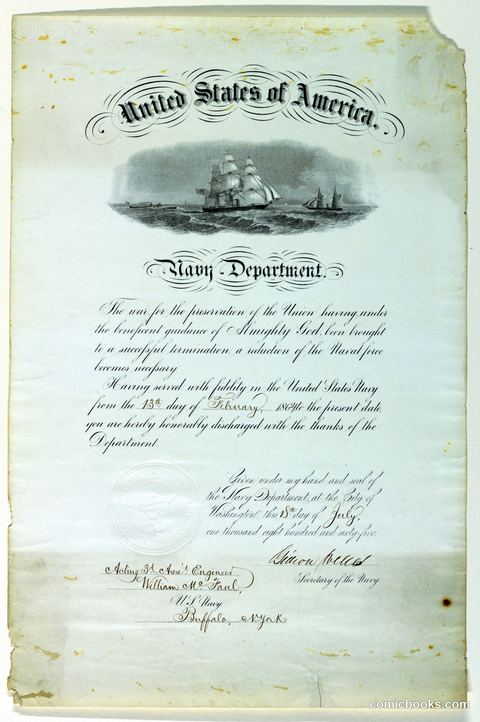 United States of America.
Navy Department.
The war for the preservation of the Union having under
the beneficent guidance of Almighty God, been brought
to a successful termination, a reduction of the Naval force
becomes necessary
Having served with fidelity in the United States Navy
from the 13th day of February, 1864 to the present date
you are hereby honorably discharged with the thanks of the
Department.
Given under my hand and seal of
the Navy Department, at the City of
Washington, this 18th day of July,
one thousand eight hundred and sixty-five.
Gideon Welles
Secretary of the Navy.
Acting 3d Ass't Engineer
William McFaul,
U.S. Navy
Buffalo, N York
comicbooks.com